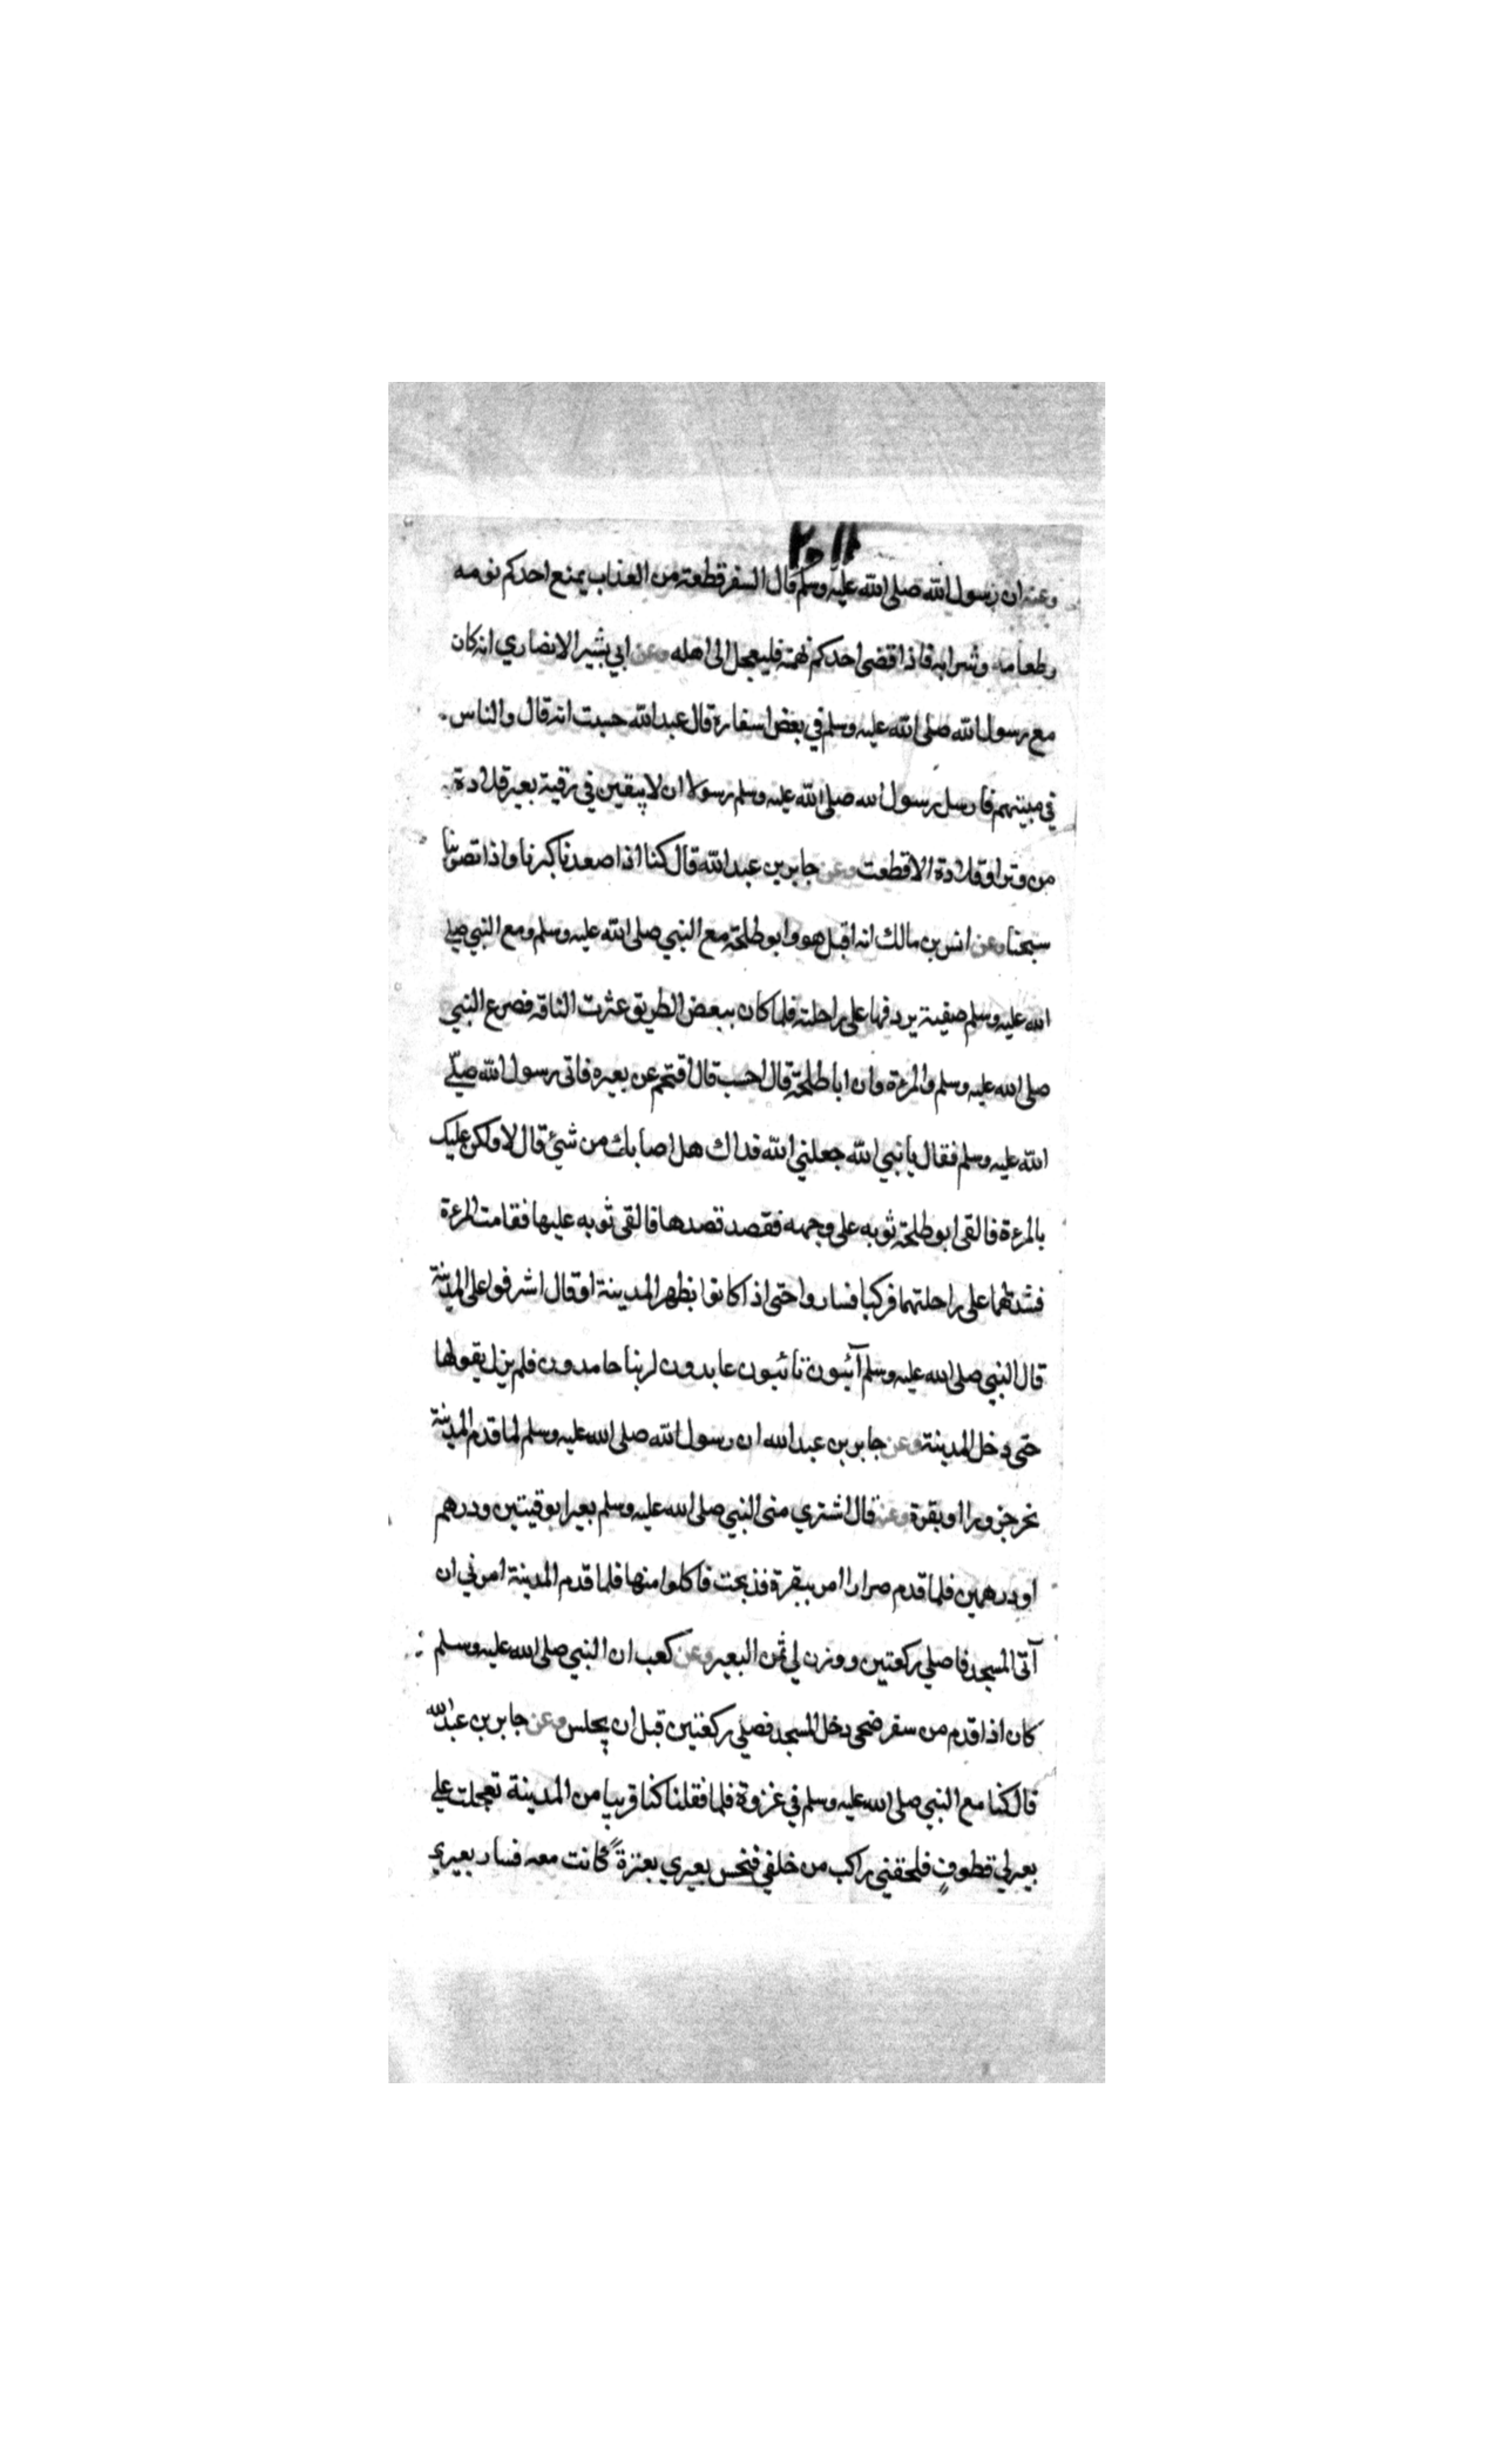 وعنه ان رسول الله صلى الله عليه وسلم قال السفر قطعة من العذاب يمنع احدكم نومه
وطعامه وشرابه فاذا قضى احدكم نهمته فليعجل الى اهله وعن ابي بشير الانصاري انه كان
مع رسول الله صلى الله عليه وسلم في بعض اسفاره قال عبد الله حسبت انه قال والناس
في مبيتهم فارسل رسول الله صلى الله عليه وسلم رسولا ان لا يبقين في رقبة بعير قلادة
من وتر او قلادة الا قطعت وعن جابر بن عبد الله قال كنا اذا صعدنا كبرنا واذا تصوبنا
سبحنا وعن انس بن مالك انه اقبل هو وابو طلحة مع النبي صلى الله عليه وسلم ومع النبي صلى
الله عليه وسلم صفية يردفها على راحلته فلما كان ببعض الطريق عثرت الناقة فصرع النبي
صلى الله عليه وسلم والمرءة وان ابا طلحة قال احسب قال اقتحم عن بعيره فاتى رسول الله صلى
الله عليه وسلم فقال يا نبي الله جعلني الله فداك هل اصابك من شيئ قال لا ولكن عليك
بالمرءة فالقى ابو طلحة ثوبه على وجهه فقصد قصدها فالقى ثوبه عليها فقامت المرءة
فشد لهما على راحلتهما فركبا فساروا حتى اذا كانوا بظهر المدينة او قال اشرفوا على المدينة
قال النبي صلى الله عليه وسلم آئبون تائبون عابدون لربنا حامدون فلم يزل يقولها
حتى دخل المدينة وعن جابر بن عبد الله ان رسول الله صلى الله عليه وسلم لما قدم المدينة
نحر جزورا او بقرة وعنه قال اشتري منى النبي صلى الله عليه وسلم بعيرا بوقيتين ودرهم
او درهمين فلما قدم صرارا امر ببقرة فذبحت فاكلوا منها فلما قدم المدينة امرني ان
آتى المسجد فاصلي ركعتين ووزن لي ثمن البعير وعن كعب ان النبي صلى الله عليه وسلم
كان اذا قدم من سفر ضحى دخل المسجد فصلى ركعتين قبل ان يجلس وعن جابر بن عبد الله
قال كنا مع النبي صلى الله عليه وسلم في غزوة فلما قفلنا كنا قريبا من المدينة تعجلت على
بعير لي قطوف فلحقني راكب من خلفي فنخس بعيري بعنزة كانت معه فسار بعيري